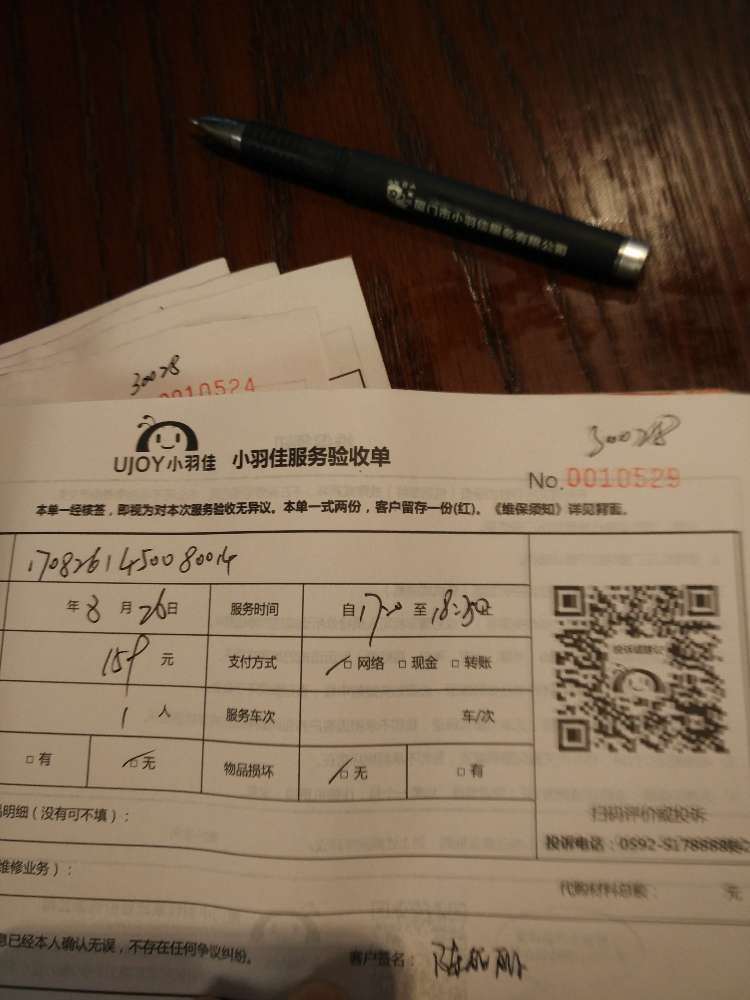 厦门市小羽佳服务有限公司
30028
0010524
UJOY小羽佳 小羽佳服务验收单
30028
No.0010529
本单一经核签,即视为对本次服务验收无异议。本单一式两份,客户留存一份(红)。《维保须知》详见背面。
1708261450080014
年8月26日 服务时间 自17:20至18:50止
159元 支付方式 □网络 □现金 □转账
1人 服务车次 车/次
□有 □无 物品损坏 □无 □有
投诉或建议
扫码评价或投诉
明细(没有可不填):
投诉电话:0592-5178888
维修业务):
代购材料总额: 元
息已经本人确认无误,不存在任何争议纠纷。
客户签名: